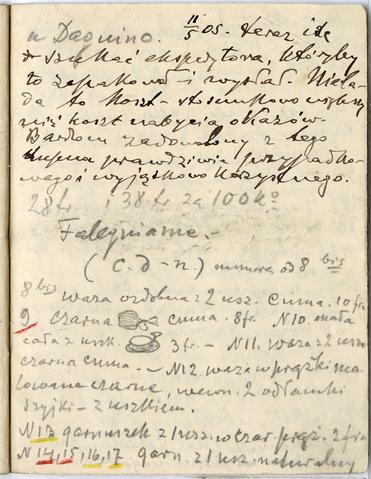 u Daquino. 11/5 05. teraz idę
szukać ekspedytora, któryby
to zapakował i wysłał. Niela-
da to koszt – stosunkowo większy
niż koszt nabycia okazów.
Bardzom zadowolony z tego
kupna prawdziwie przypadko-
wego i wyjątkowo korzystnego.
28 fr. i 38 fr. za 100 ko
(c. d-n.) numera od 8 bis
8 bis waza ozdobna z 2 usz. Cuma. 10 fr.
9 czarna cuma. 8 fr. N10. mała
cała z uszk. 3 fr. – N11. waza z 2 usz.
czarna cuma. – N12 waza w prążki ma-
lowane czarne, wewn. 2 odłamki
szyjki – z uszkiem.
N13 garnuszek z 1 usz. w czar. prąż. 2 fr.
N14, 15, 16, 17 garn. z 1 usz. naturalny